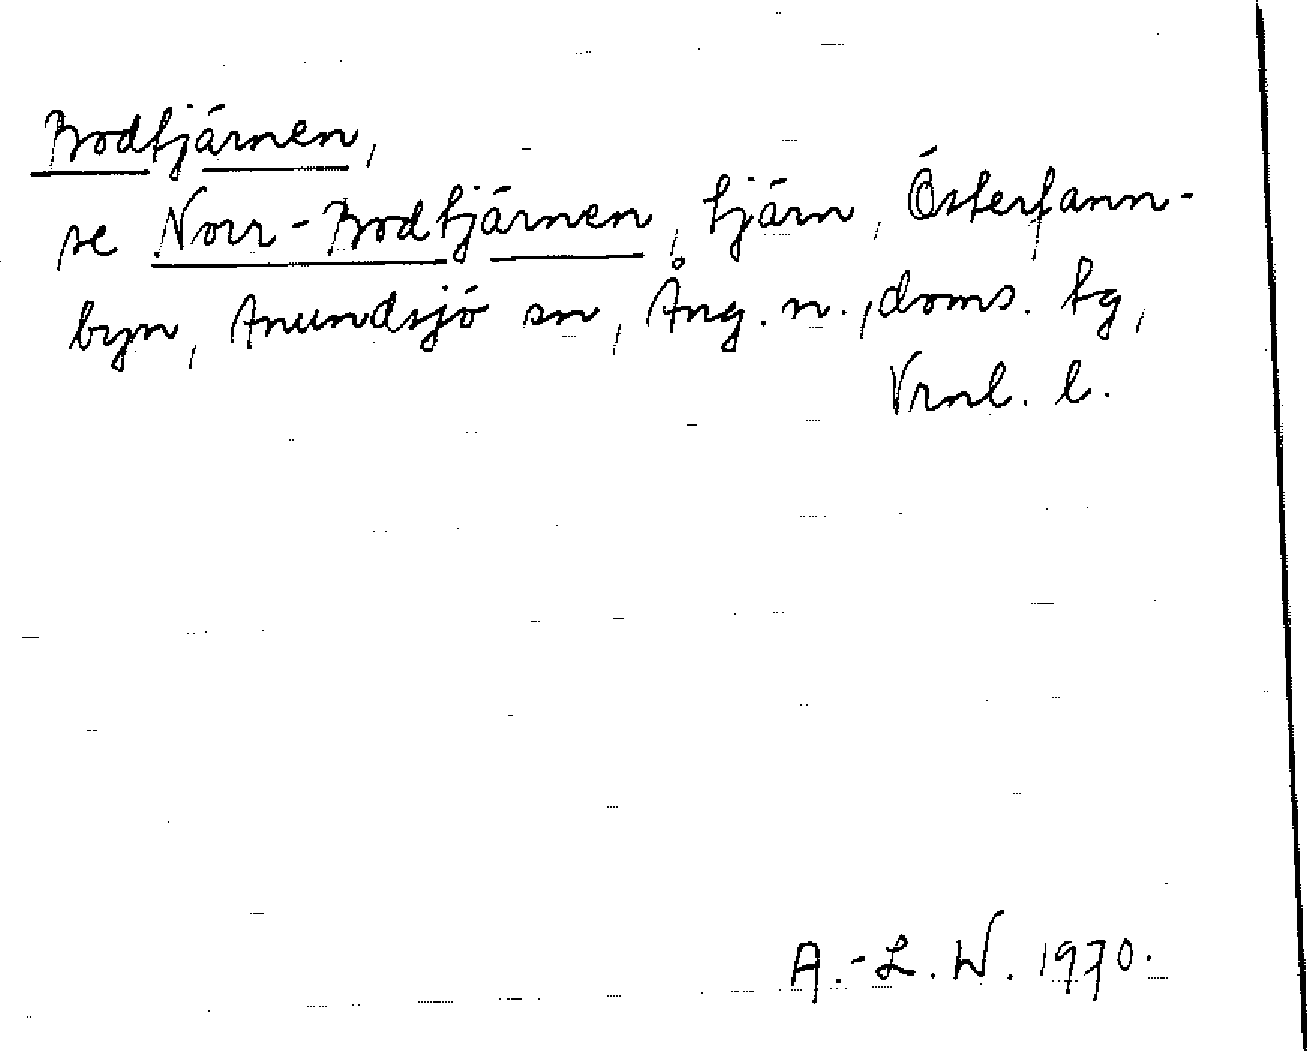 Bodtjärnen,
se Norr-Bodtjärnen, tjärn, Österfann-
byn, Anundsjö sn, Ång. n., doms. tg,
Vrnl. l.
A.-L. W. 1970.